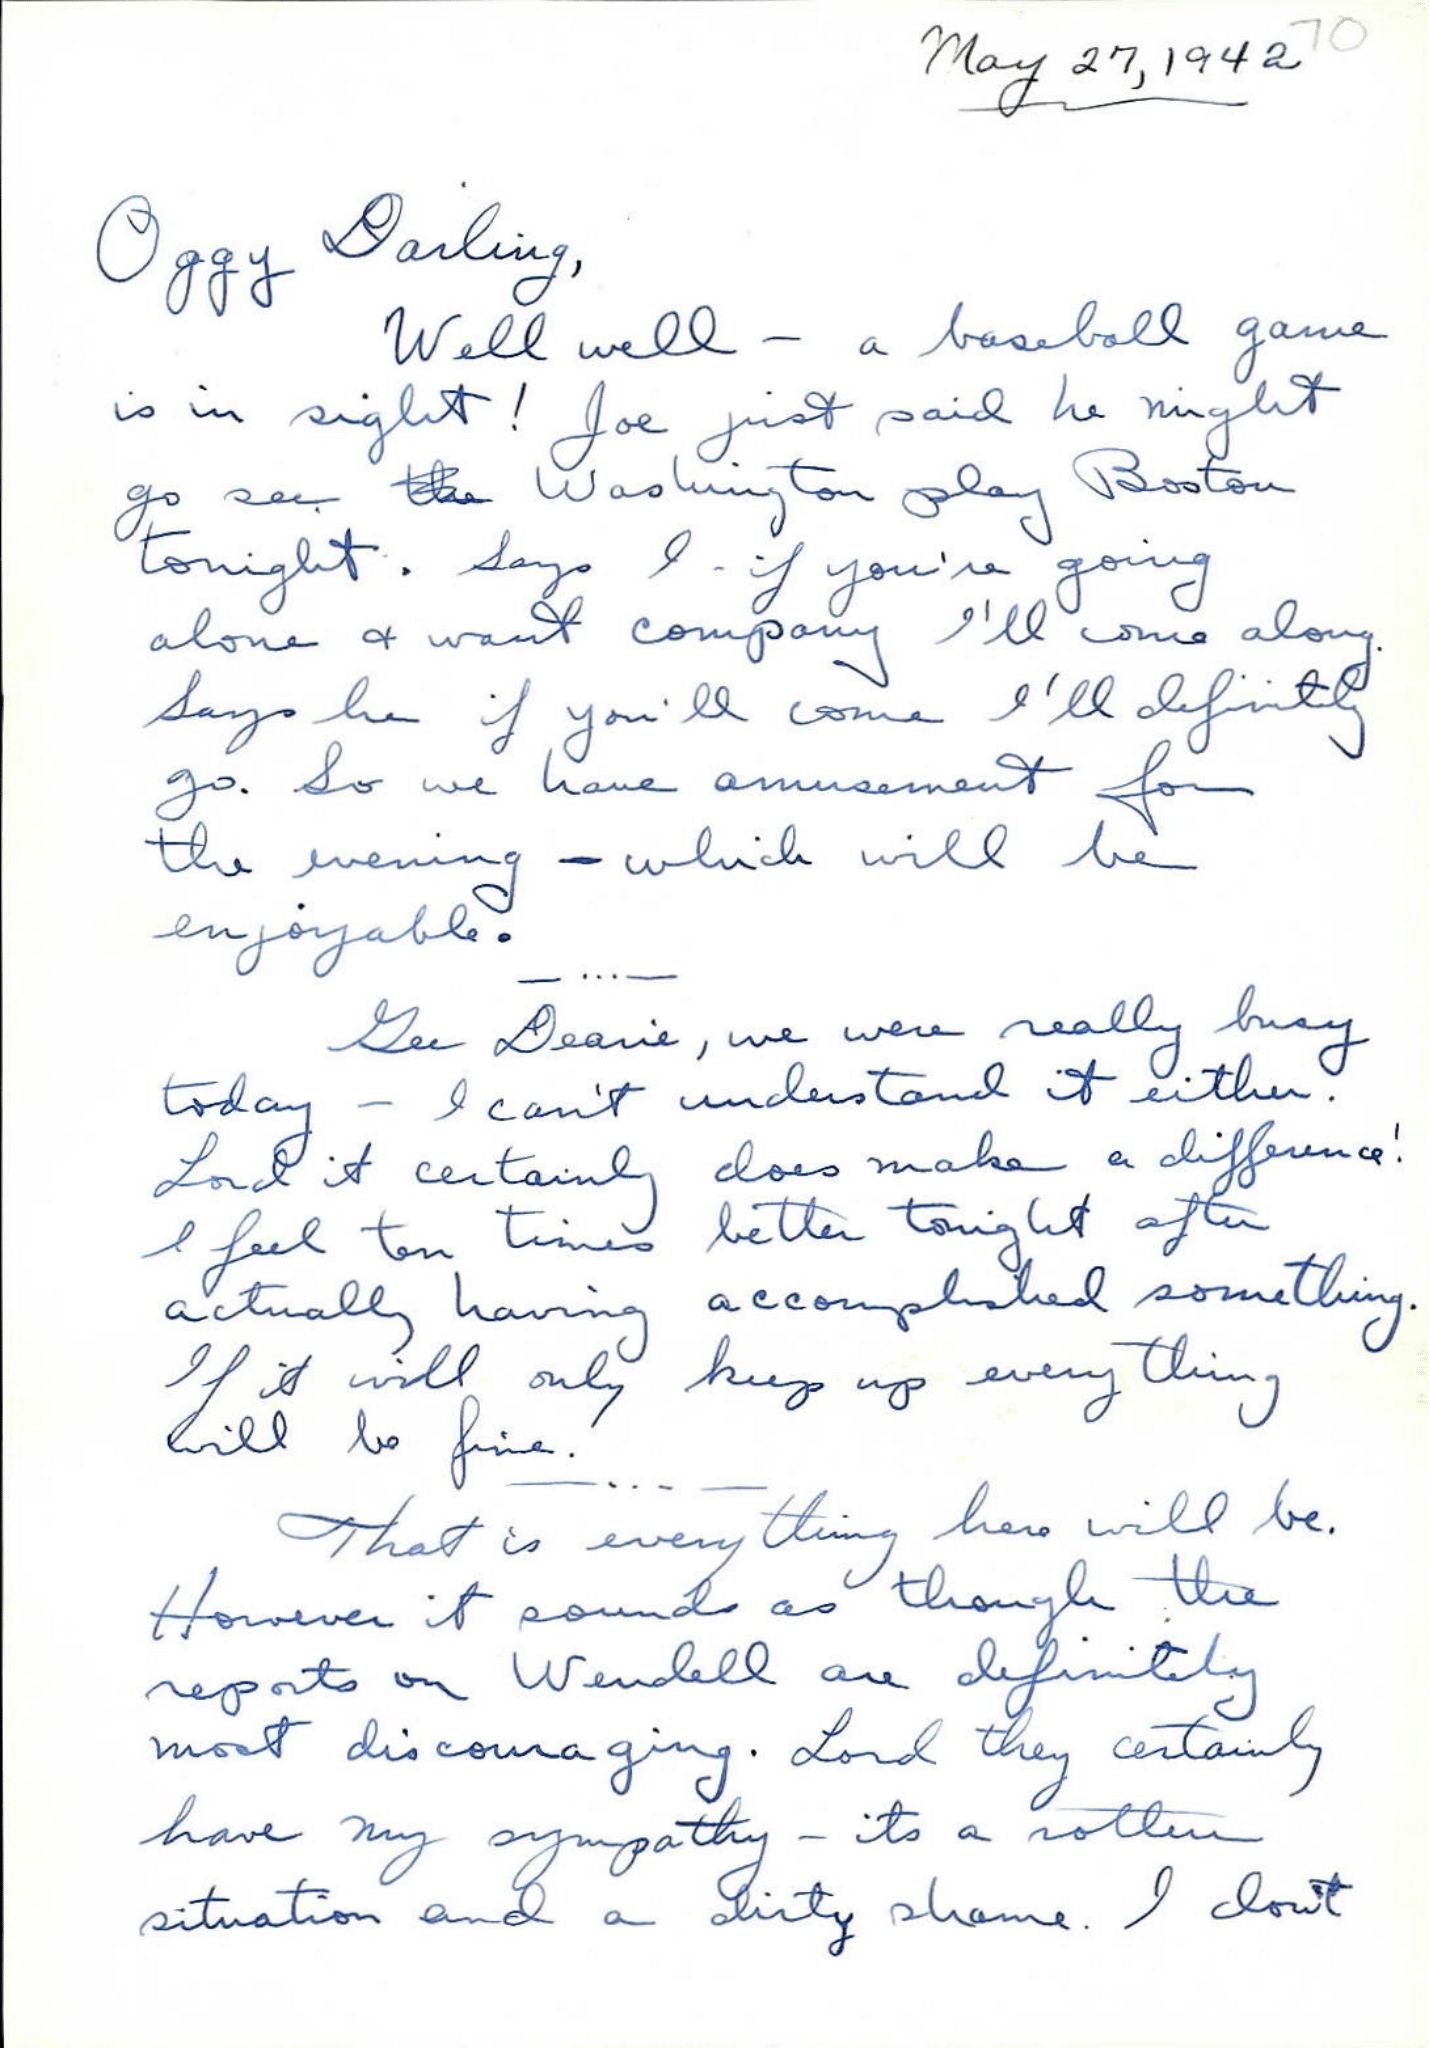 70
May 27, 1942
Oggy Darling,
Well well - a baseball game
is in sight! Joe just said he might
go see the Washington play Boston
tonight. Says I - if you're going
alone & want company I'll come along.
Says he if you'll come I'll definitely
go. So we have amusement for
the evening - which will be
enjoyable.
— ... —
Gee Dearie, we were really busy
today - I can't understand it either.
Lord it certainly does make a difference!
I feel ten times better tonight after
actually having accomplished something.
If it will only keep up everything
will be fine.
— ... —
That is everything here will be.
However it sounds as though the
reports on Wendell are definitely
most discouraging. Lord they certainly
have my sympathy - its a rotten
situation and a dirty shame. I don't